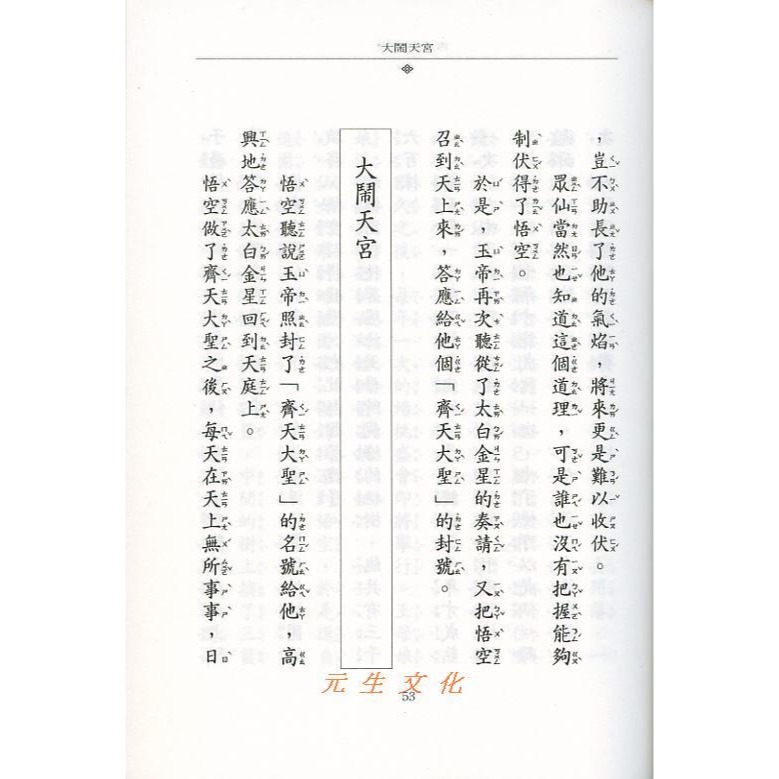 大鬧天宮
，豈不助長了他的氣焰，將來更是難以收伏。
眾仙當然也知道這個道理，可是誰也沒有把握能夠
制伏得了悟空。
於是，玉帝再次聽從了太白金星的奏請，又把悟空
召到天上來，答應給他個「齊天大聖」的封號。
大鬧天宮
悟空聽說玉帝照封了「齊天大聖」的名號給他，高
興地答應太白金星回到天庭上。
悟空做了齊天大聖之後，每天在天上無所事事，日
元生文化
53